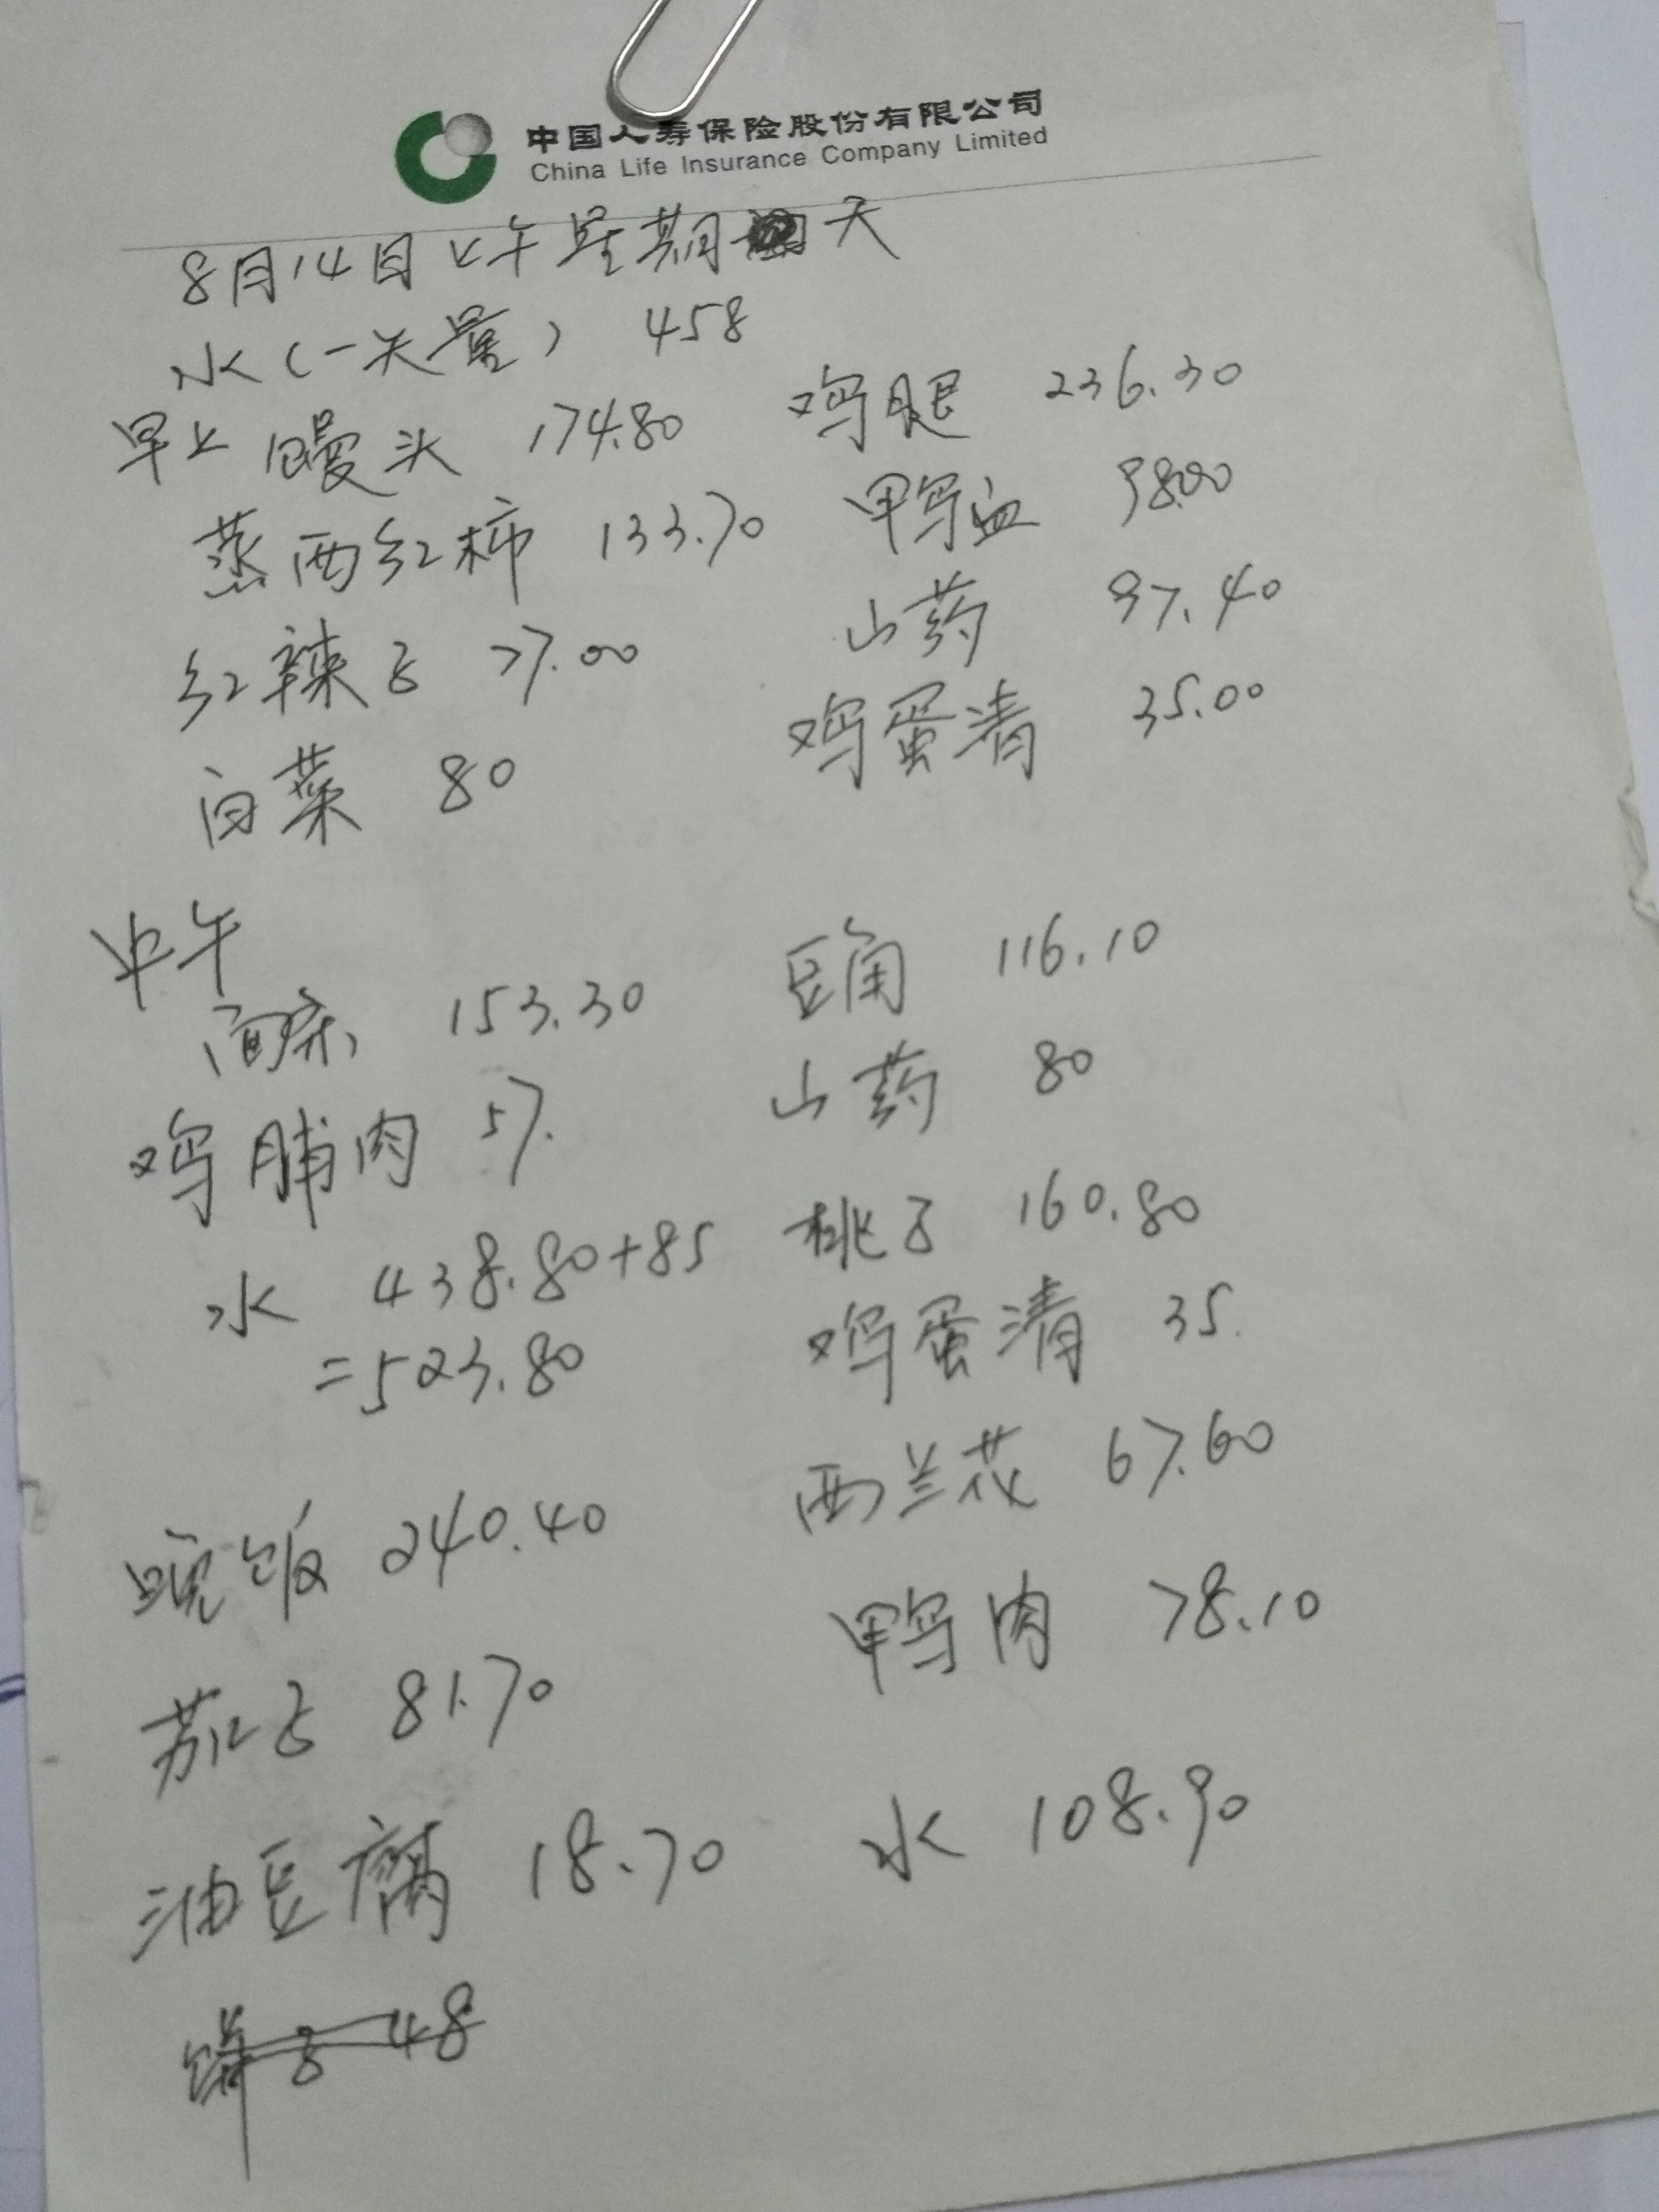 中国人寿保险股份有限公司
China Life Insurance Company Limited
8月14日上午星期天
水(一天量) 458
早上 馒头 174.80 鸡腿 236.30
蒸西红柿 133.70 鸭血 98.00
红辣子 77.00 山药 97.40
白菜 80 鸡蛋清 35.00
中午
面条 153.30 豆角 116.10
鸡脯肉 57. 山药 80
水 438.80+85 桃子 160.80
=523.80 鸡蛋清 35.
西兰花 67.60
晚饭 240.40
鸭肉 78.10
茄子 81.70
油豆腐 18.70 水 108.90
48